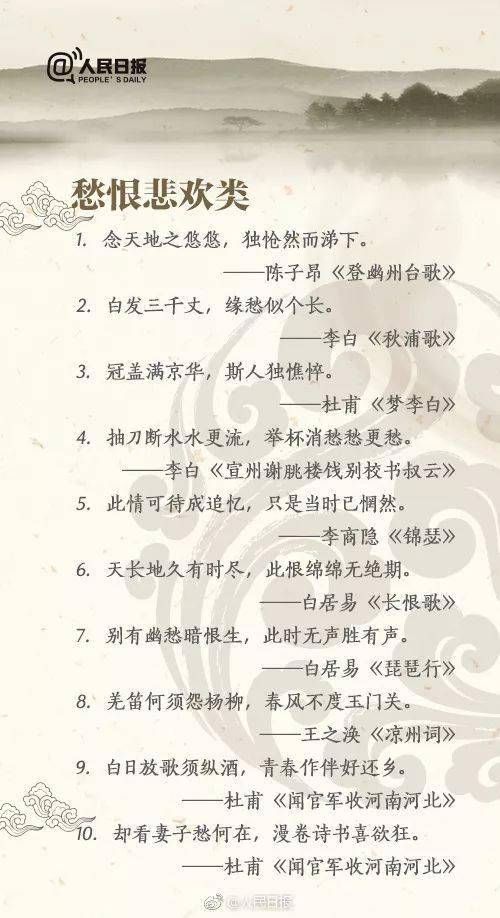 @人民日报
PEOPLE'S DAILY
愁恨悲欢类
1. 念天地之悠悠，独怆然而涕下。
——陈子昂《登幽州台歌》
2. 白发三千丈，缘愁似个长。
——李白《秋浦歌》
3. 冠盖满京华，斯人独憔悴。
——杜甫《梦李白》
4. 抽刀断水水更流，举杯消愁愁更愁。
——李白《宣州谢朓楼饯别校书叔云》
5. 此情可待成追忆，只是当时已惘然。
——李商隐《锦瑟》
6. 天长地久有时尽，此恨绵绵无绝期。
——白居易《长恨歌》
7. 别有幽愁暗恨生，此时无声胜有声。
——白居易《琵琶行》
8. 羌笛何须怨杨柳，春风不度玉门关。
——王之涣《凉州词》
9. 白日放歌须纵酒，青春作伴好还乡。
——杜甫《闻官军收河南河北》
10. 却看妻子愁何在，漫卷诗书喜欲狂。
——杜甫《闻官军收河南河北》
@人民日报